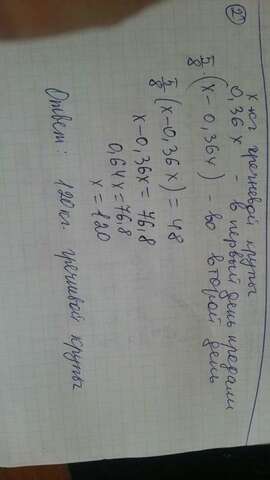 2)
x кг гречневой крупы
0,36x - в первый день продали
5/8 (x - 0,36x) - во второй день
5/8 (x - 0,36x) = 48
x - 0,36x = 76,8
0,64x = 76,8
x = 120
Ответ: 120 кг. гречневой крупы